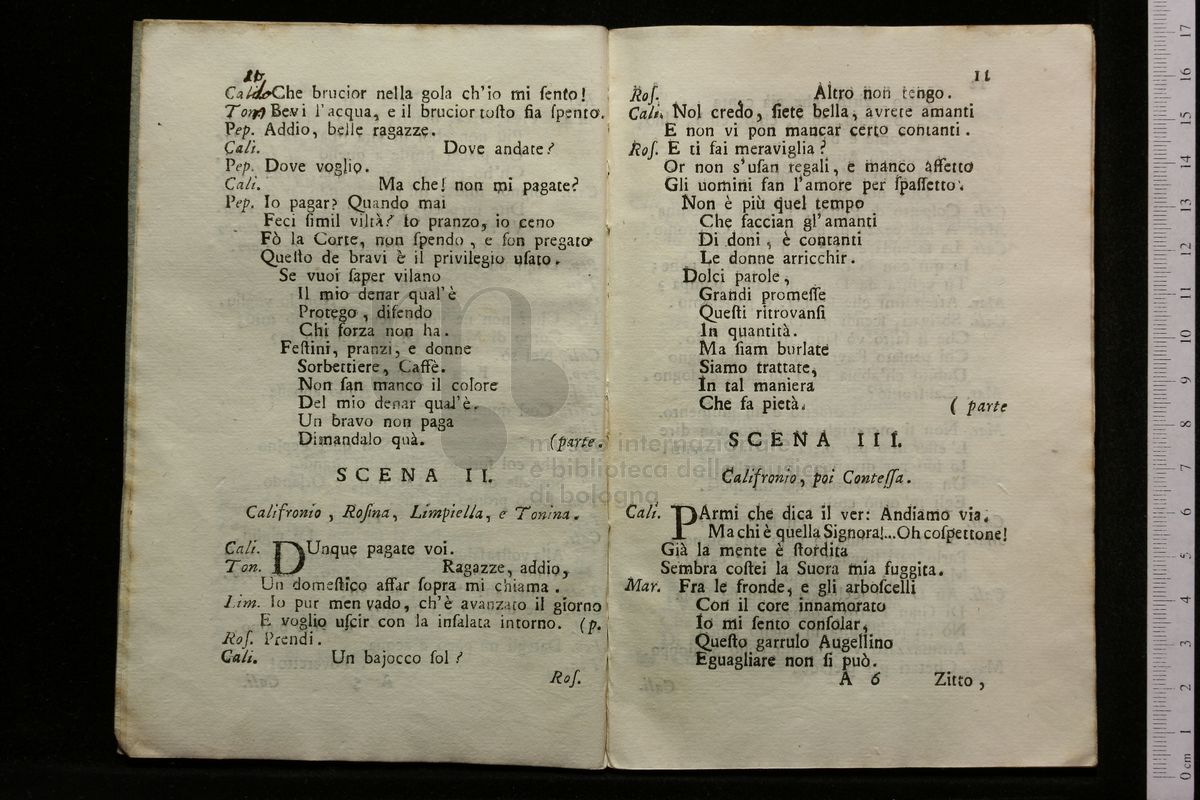 10
Cali. Che brucior nella gola ch'io mi ſento!
Ton. Bevi l'acqua, e il brucior toſto fia ſpento.
Pep. Addio, belle ragazze.
Cali. Dove andate?
Pep. Dove voglio.
Cali. Ma che! non mi pagate?
Pep. Io pagar? Quando mai
Feci ſimil viltà? Io pranzo, io ceno
Fò la Corte, non ſpendo, e ſon pregato
Queſto de bravi è il privilegio uſato.
Se vuoi ſaper vilano
Il mio denar qual'è
Protego, difendo
Chi forza non ha.
Feſtini, pranzi, e donne
Sorbettiere, Caffè.
Non ſan manco il colore
Del mio denar qual'è.
Un bravo non paga
Dimandalo quà. (parte.
SCENA II.
Califronio, Roſina, Limpiella, e Tonina.
Cali. DUnque pagate voi.
Ton. Ragazze, addio,
Un domeſtico affar ſopra mi chiama.
Lim. Io pur men vado, ch'è avanzato il giorno
E voglio uſcir con la inſalata intorno. (p.
Roſ. Prendi.
Cali. Un bajocco ſol?
Roſ.
11
Roſ. Altro non tengo.
Cali. Nol credo, ſiete bella, avrete amanti
E non vi pon mancar certo contanti.
Roſ. E ti fai meraviglia?
Or non s'uſan regali, e manco affetto
Gli uomini fan l'amore per ſpaſſetto.
Non è più quel tempo
Che faccian gl'amanti
Di doni, è contanti
Le donne arricchir.
Dolci parole,
Grandi promeſſe
Queſti ritrovanſi
In quantità.
Ma ſiam burlate
Siamo trattate,
In tal maniera
Che fa pietà. (parte
SCENA III.
Califronio, poi Conteſſa.
Cali. PArmi che dica il ver: Andiamo via.
Ma chi è quella Signora!...Oh coſpettone!
Già la mente è ſtordita
Sembra coſtei la Suora mia fuggita.
Mar. Fra le fronde, e gli arboſcelli
Con il core innamorato
Io mi ſento conſolar,
Queſto garrulo Augellino
Eguagliare non ſi può.
A 6 Zitto,
museo internazionale
e biblioteca della musica
di bologna
0 cm 1 2 3 4 5 6 7 8 9 10 11 12 13 14 15 16 17